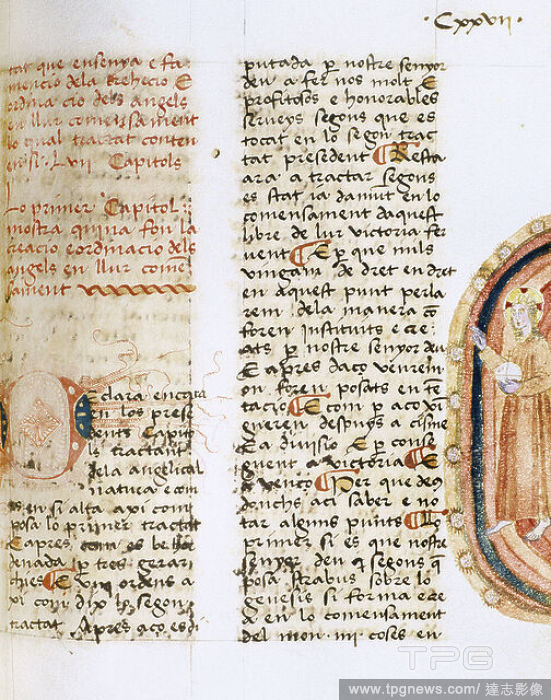 ·Cxxvii·
tat que ensenya e fa
mencio dela crehecio E
ordina cio dels angels
en llur comensament
lo qual tractat conten
en si· Lvii Capitols
Lo primer Capitol
mostra quina fon la
creacio e ordinacio dels
angels en llur come
sament
Eclara encara
en los prese
dents Capito
ls tractant
dela angelical
natura e com
es en si alta axi com
posa lo primer tractat
E apres com es be hor
denada p tres gerar
chies E Com ordens a
xi com dix segon
tractat Apres aço es di
putada p nostre senyor
deu a fer nos molt E
profitosos e honorables
serueys segons que es
tocat en lo segon trac
tat president Resta
ara a tractar segons
es stat ia damut en lo
comensament daquest
libre de lur victoria fer
uent E p que mils
vingam de dret en dret
en aquest punt perla
rem dela manera co
foren instituits e cre
ats p nostre senyor deu
E apres daço venrem
on foren posats en te
tacio E com p aço vi
gueren despuys a cisme
E a diuisio E p conse
guent a victoria E
a venço Per que deu
donchs aci saber e no
tar alguns punts Lo
primer si es que nostre
senyer deu segons q
posa strabus sobre lo
genesis si forma e cre
a en lo comensament
del mon iiii coses en
TPG
www.tpgnews.com/達志影像